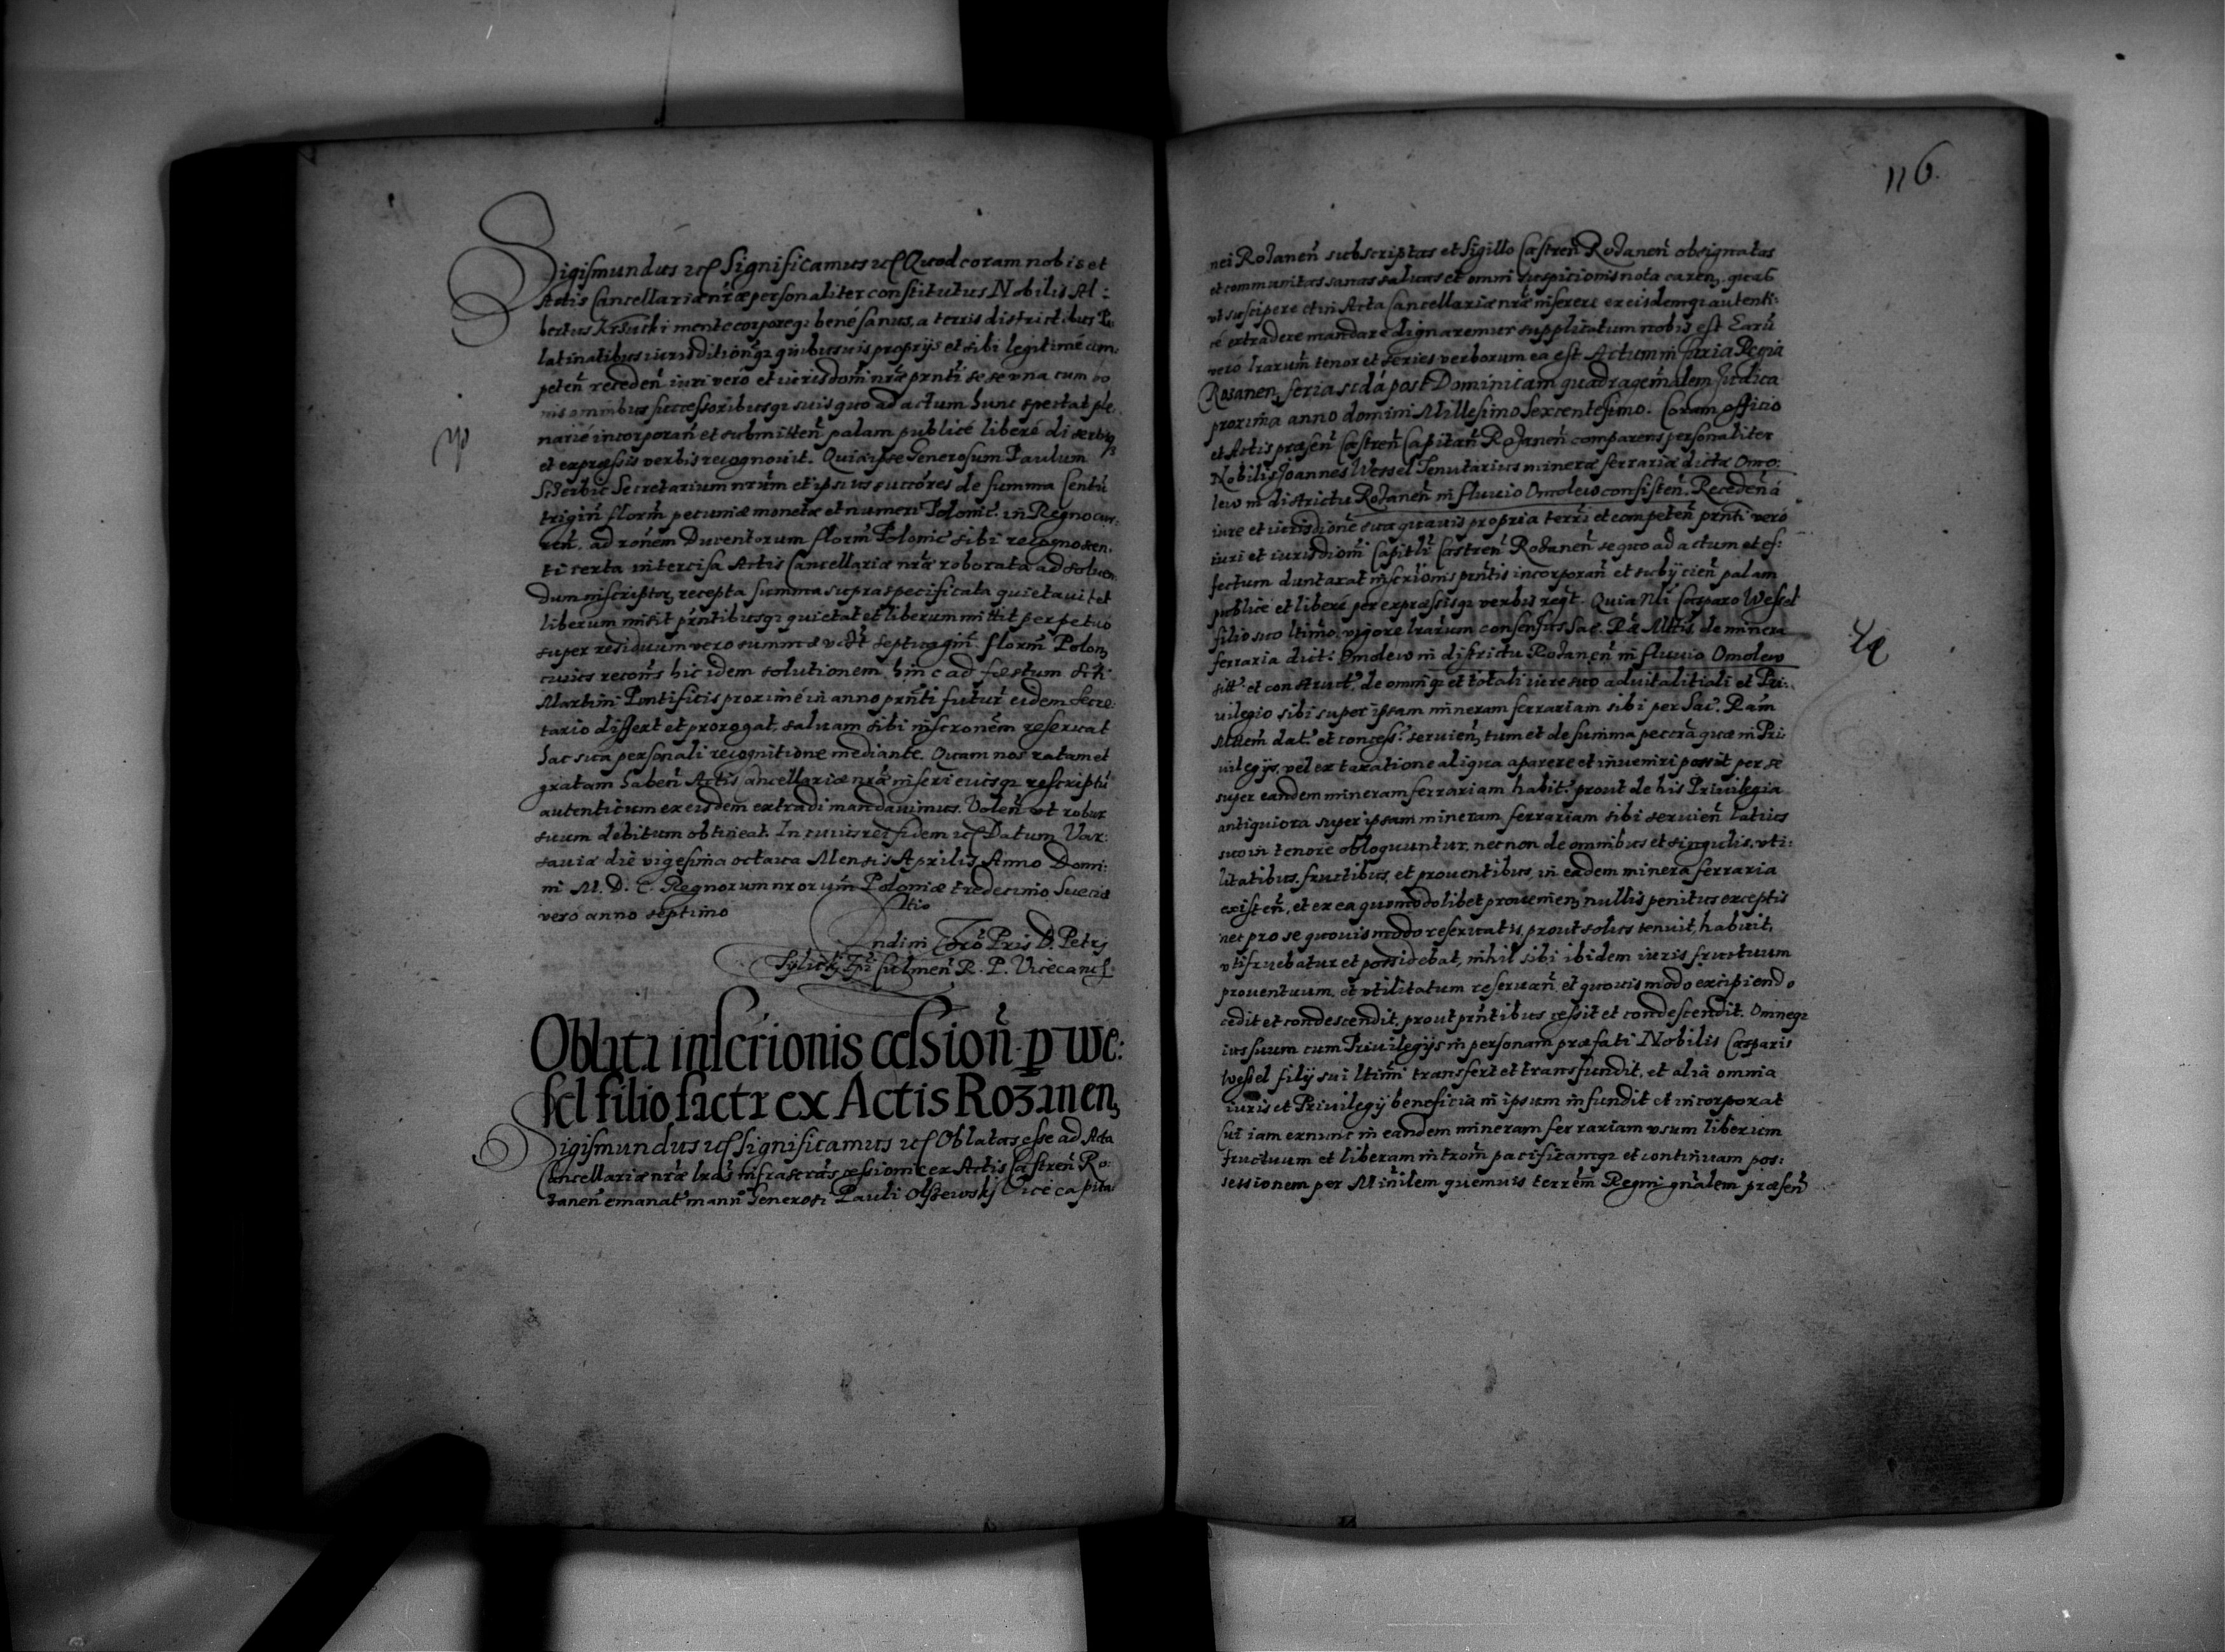 Sigismundus etc Significamus etc Quod coram nobis et
Actis Cancellariæ nr̃æ personaliter constitutus Nobilis Al:
bertus Krsucki mente corporeq; bené sanus, a terris districtibus Pa
latinatibus iurisditionq; quibusuis proprijs et sibi legitimé com:
peteñ recedeñ iuri veró et iurisdom̃ nr̃æ prñti se se vna cum bo
nis omnibus successoribusq; suis quo ad actum hunc spectat ple
narié incorporañ et submitteñ palam publicé liberé disertisq
et expressis verbis recognouit. Quia ipse Generosum Paulum
Sczerbic Secretarium nrũm et ipsius succóres de summa Centũ
trigiñ florm̃ pecuniæ monetæ et numeri Polonic: in Regno cur:
ren̄. ad rónem Ducentorum florm̃ Polonic sibi recognoscen
ti certa intercisa Actis Cancellariæ nr̃æ roborata ad soluen
dum inscriptor, recepta summa supra specificata quietauit et
liberum misit prñtibusq; quietat et liberum mittit perpetuo
super residuum vero summæ vidlt septuagin̄. florm̃ Polon,
cuius recoñs hic idem solutionem hinc ad festum Scti
Martini Pontificis proximé in anno prñti futur̃ eidem Secre:
tario differt et prorogat, saluam sibi inscronem reseruat
hac sua personali recognitione mediante. Quam nos ratam et
gratam habeñ Actis Cancellariæ nr̃æ inseri eiusq; rescriptũ
autenticum ex eisdem extradi mandauimus. Voleñ vt robur
suum debitum obtineat. In cuius rei fidem etc Datum Var:
sauiæ die vigesima octaua Mensis Aprilis Anno Domi:
ni M. D. C. Regnorum nrorum̃ Poloniæ tredecimo Sueciæ
vero anno septimo
Rltio
Rndim̃ Chro Pris D. Petrj
Tylickj Epi Culmeñ R. P. Vicecanc̃
Oblata inscrionis cessioñ p we:
ssel filio factæ ex Actis Rozanen,
Sigismundus etc Significamus etc Oblatas esse ad Acta
Cancellariæ nr̃æ lras̃ infrascrãs cessionis ex Actis Castreñ Ro:
zaneñ emanat̃ manu Generosi Pauli Olszewskj Vice capita
116.
nei Rozaneñ subscriptas et Sigillo Castreñ Rozaneñ obsignatas
et communitas sanas saluas et omni suspicionis nota caren, quas
vt suscipere et in Acta Cancellariæ nr̃æ inserere ex eisdemq; autenti:
cé extradere mandare dignaremur supplicatum nobis est Earũ
veró lrarum̃ tenor et series verborum ea est. Actum in Curia Regia
Rozanen, feria scdá post Dominicam quadragem̃alem Judica
proxima anno domini Millesimo Sexcentesimo. Coram officio
et Actis præseñ Castreñ Capitañ Rozaneñ comparens personaliter
Nobilis Joannes Wessel Tenutarius mineræ ferrariæ dictæ Omo:
lew in districtu Rozaneñ in fluuio Omolew consisteñ. Recedeñ á
iure et iurisdione sua quauis propria terri et competeñ prñti veró
iuri et iurisdiom̃ Capitli Castreñ Rozaneñ se quo ad actum et ef:
fectum duntaxat inscrionis prñtis incorporañ et subijcieñ palam
publice et liberé per expræssisq; verbis reqt. Quia Nli Casparo Wessel
filio suo ltimo, vigore lrarum consensus Sac. Ræ Mttis, de minera
ferraria dict: Omolew in districtu Rozaneñ in fluuio Omolew
sitt: et construct, de omniq; et totali iure suo aduitalitiali et Pri:
uilegio sibi super ipsam mineram ferrariam sibi per Sac. Ram
Mttem dat: et concess: seruien, tum et de summa peccrã quæ in Pri
uilegijs, vel ex taxatione aliqua aparere et inueniri possit per se
super eandem mineram ferrariam habit: prout de his Priuilegia
antiquiora super ipsam mineram ferrariam sibi seruieñ latius
suo in tenore obloquuntur, necnon de omnibus et singulis, vti:
litatibus, fructibus, et prouentibus, in eadem minera ferraria
existeñ, et ex ea quomodolibet prouenien, nullis penitus exceptis
nec pro se quouis modo reseruatis, prout solus tenuit, habuit,
vtifruebatur et possidebat, nihil sibi ibidem iuris fructuum
prouentuum, et vtilitatum reseruañ, et quouis modo excipiendo
cedit et condescendit, prout prñtibus cessit et condescendit. Omneq;
ius suum cum Priuilegijs in personam præfati Nobilis Casparis
Wessel filij sui ltimi transfert et transfundit, et alia omnia
iuris et Priuilegij beneficia in ipsum infundit et incorporat
Cui iam exnunc in eandem mineram ferrariam vsum liberum
fructuum et liberam introm̃ pacificamq; et continuam pos:
sessionem per Minilem quemuis terrem̃ Regni gñalem præseñ